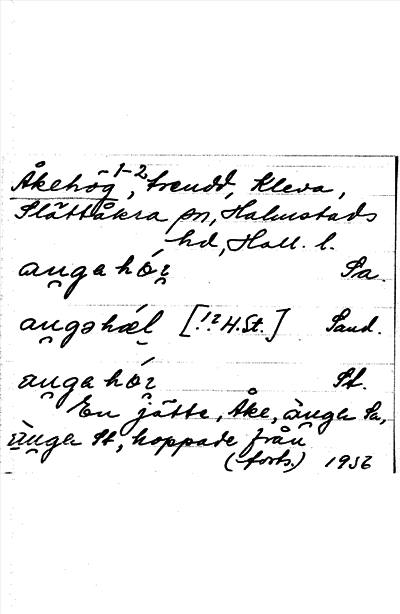 Åkehög 1-2, trendd, Kleva,
Slättåkra sn, Halmstads
hd, Hall. l.
aṳngahóṛ Sa.
aṳngəhæĺ [!? H.St.] Sand.
aṳngahóṛ St.
En jätte, Åke, àṳnga Sa,
àṳnga St, hoppade från
(forts.) 1956